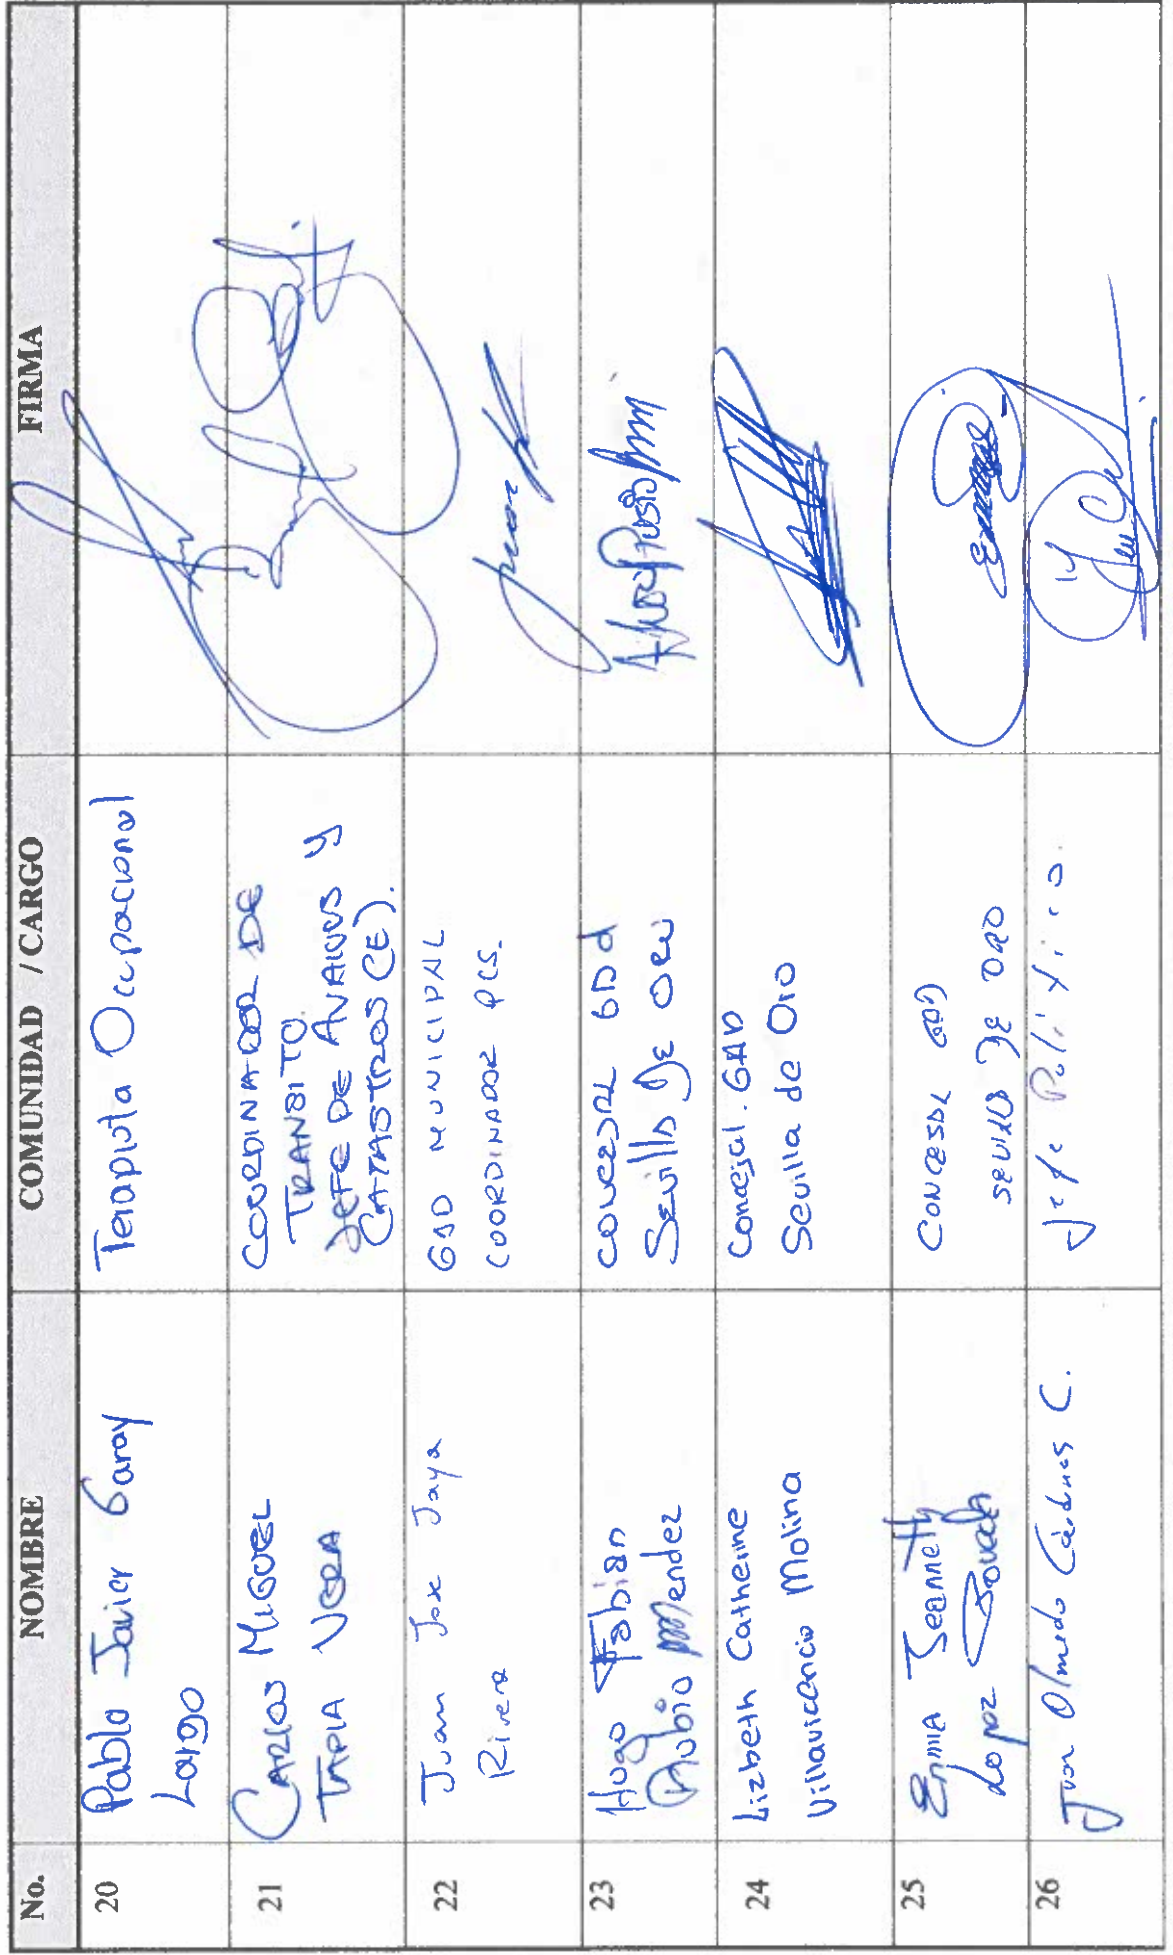 No. NOMBRE COMUNIDAD / CARGO FIRMA
20 Pablo Javier Garay
Largo
Terapista Ocupacional
21 CARLOS MIGUEL
TAPIA VERA
COORDINADOR DE
TRANSITO.
JEFE DE AVALUOS Y
CATASTROS (E).
22 Juan Jose Jaya
Rivera
GAD MUNICIPAL
COORDINADOR PCS.
23 Hugo Fabian
Rubio Mendez
CONCEJAL GAD
Sevilla De Oro
24 Lizbeth Catherine
Villavicencio Molina
Concejal. GAD
Sevilla de Oro
25 Enma Jeannett
Lopez
CONCEJAL GAD
SEVILLA DE ORO
26 Juan Olmedo Cárdenas C.
Jefe Político.